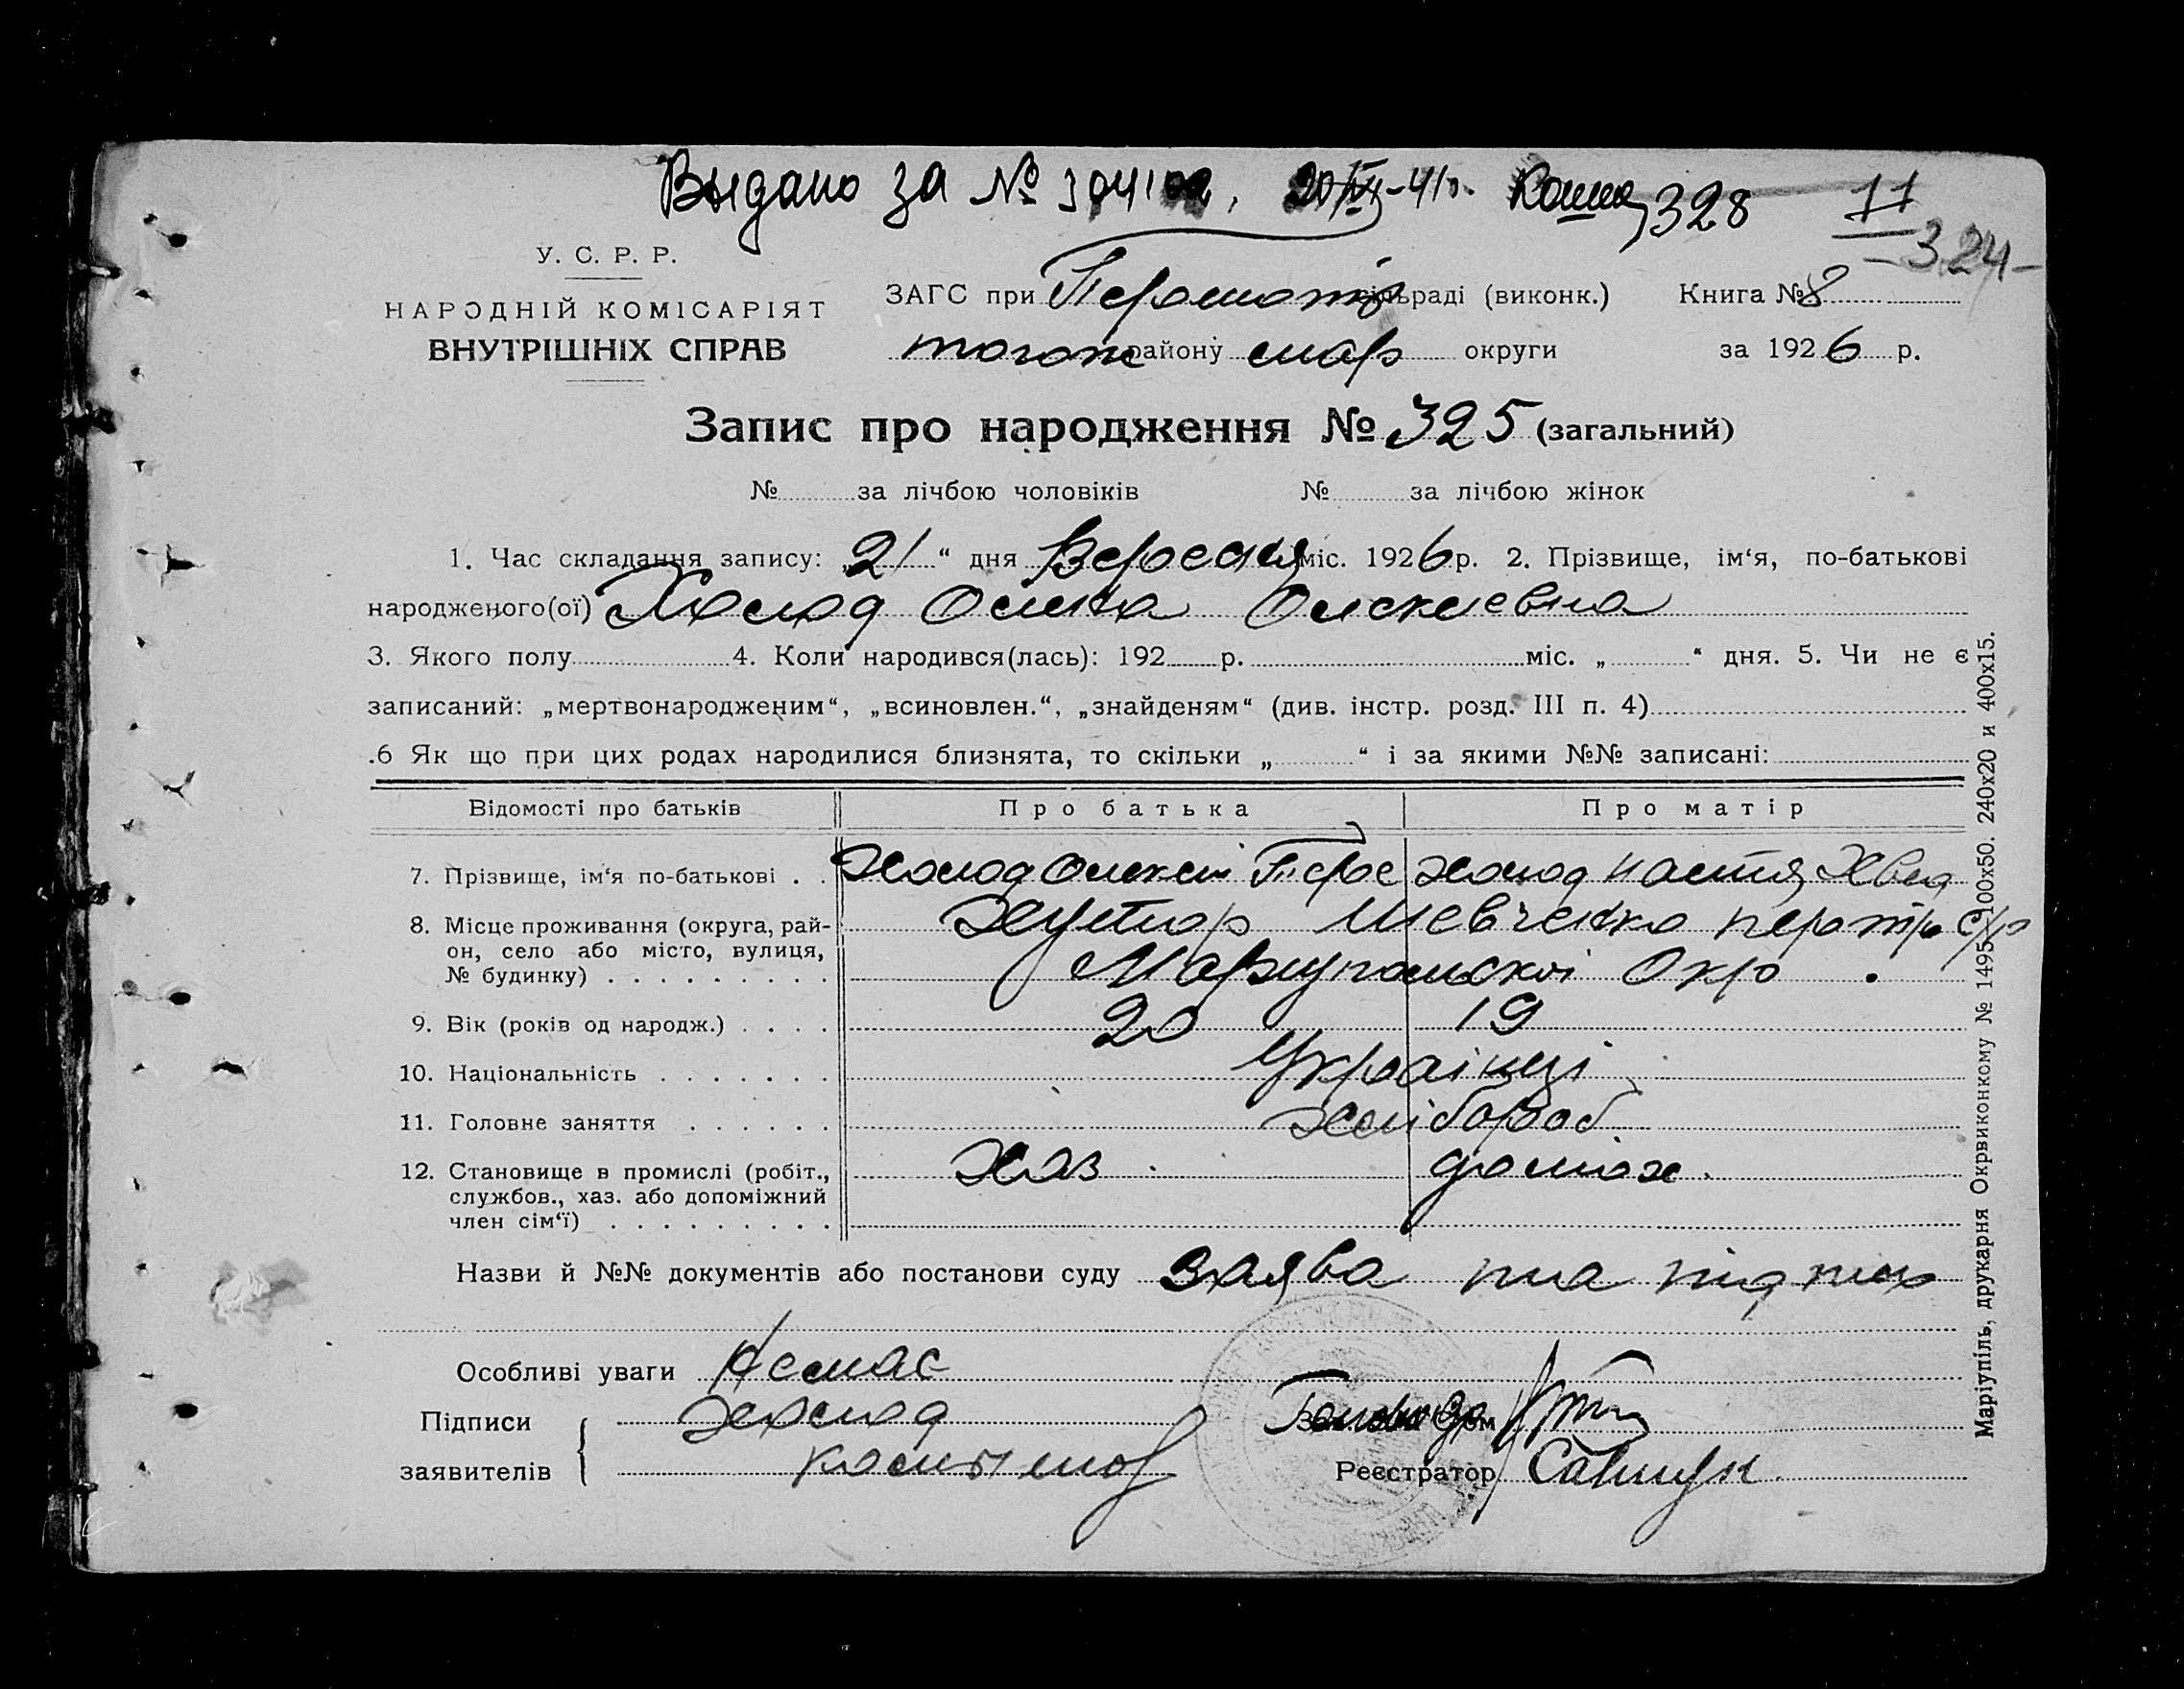 Выдано за № 20/ -41г. 328 11
-324-
У. С. Р. Р.
НАРОДНІЙ КОМІСАРІЯТ
ВНУТРІШНІХ СПРАВ
ЗАГС при сільраді (виконк.) Книга № 8
тогож району мар округи за 1926 р.
Запис про народження № 325 (загальний)
№ за лічбою чоловіків № за лічбою жінок
1. Час складання запису: 21 “ дня Вересня міс. 1926 р. 2. Прізвище, ім‘я, по-батькові
народженого(ої) Холод Олена
3. Якого полу 4. Коли народився(лась): 192 р. міс. „ “ дня. 5. Чи не є
записаний: „мертвонародженим“, „всиновлен.“, „знайденям“ (див. інстр. розд. III п. 4)
.6 Як що при цих родах народилися близнята, то скільки „ “ і за якими №№ записані:
Відомості про батьків Про батька Про матір
7. Прізвище, ім‘я по-батькові . . Холод Олексій Холод Настя Хвед
8. Місце проживання (округа, рай-
он, село або місто, вулиця,
№ будинку) . . . . . . . . .
Хутор Шевченко с/р
Маріупольскоі Окр .
9. Вік (років од народж.) . . . . 20 19
10. Національність . . . . . . . Украінці
11. Головне заняття . . . . . . хлібороб.
12. Становище в промислі (робіт.,
службов., хаз. або допоміжний
член сім‘ї) . . . . . . . . .
Хаз .
Назви й №№ документів або постанови суду заява та підпис
Особливі уваги Немає
Підписи
заявителів
Холод
Голова
Реєстратор
Маріупіль, друкарня Окрвиконкому № 1495-100х50. 240х20 и 400х15.